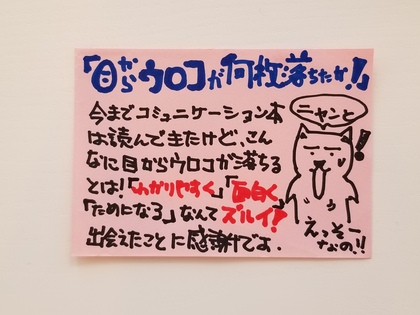 「目からウロコが何枚落ちたか!」
今までコミュニケーション本
は読んできたけど、こん
なに目からウロコが落ちる
とは!「わかりやすく」「面白く」
「ためになる」なんてズルイ!
出会えたことに感謝でよ.
ニャンと
!
えっそー
なの!!